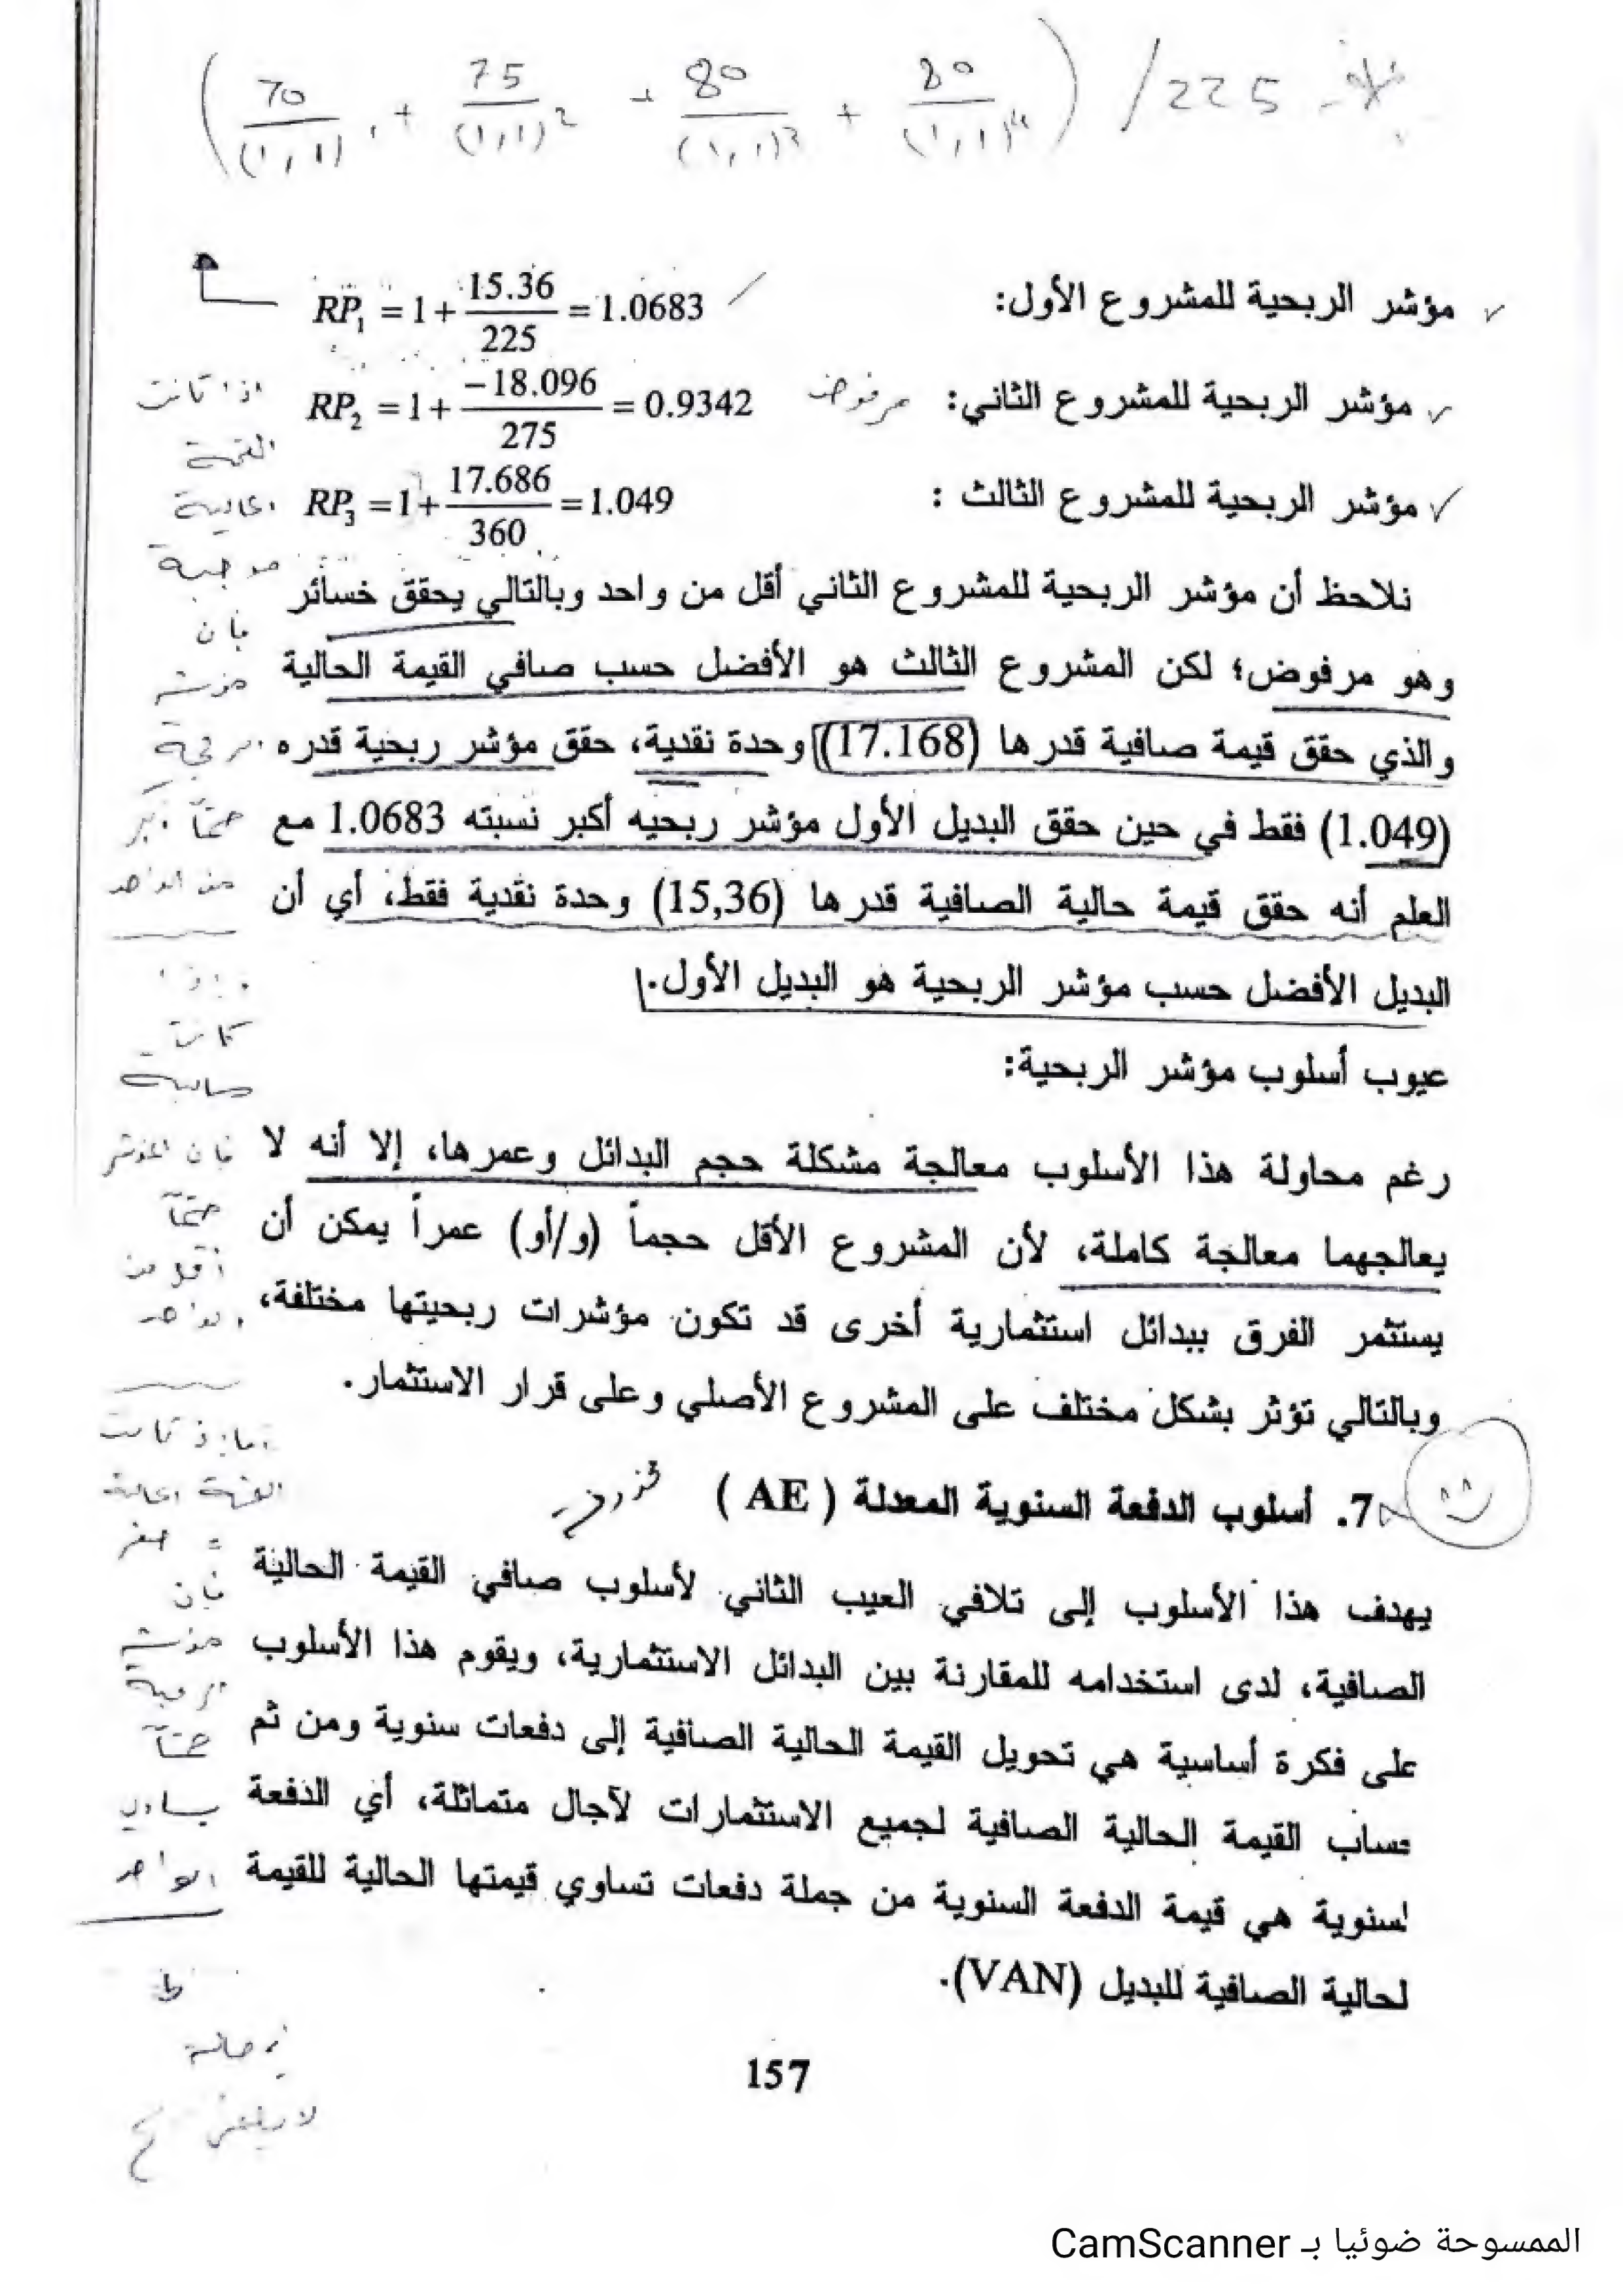 ( 70/(1,1)¹ + 75/(1,1)² + 80/(1,1)³ + 80/(1,1)⁴ ) / 225
مؤشر الربحية للمشروع الأول: RP₁ = 1 + 15.36/225 = 1.0683
مؤشر الربحية للمشروع الثاني: مرفوض RP₂ = 1 + −18.096/275 = 0.9342
مؤشر الربحية للمشروع الثالث : RP₃ = 1 + 17.686/360 = 1.049
نلاحظ أن مؤشر الربحية للمشروع الثاني أقل من واحد وبالتالي يحقق خسائر
وهو مرفوض؛ لكن المشروع الثالث هو الأفضل حسب صافي القيمة الحالية
والذي حقق قيمة صافية قدرها (17.168) وحدة نقدية، حقق مؤشر ربحية قدره
(1.049) فقط في حين حقق البديل الأول مؤشر ربحيه أكبر نسبته 1.0683 مع
العلم أنه حقق قيمة حالية الصافية قدرها (15,36) وحدة نقدية فقط، أي أن
البديل الأفضل حسب مؤشر الربحية هو البديل الأول.
عيوب أسلوب مؤشر الربحية:
رغم محاولة هذا الأسلوب معالجة مشكلة حجم البدائل وعمرها، إلا أنه لا
يعالجهما معالجة كاملة، لأن المشروع الأقل حجماً (و/أو) عمراً يمكن أن
يستثمر الفرق ببدائل استثمارية أخرى قد تكون مؤشرات ربحيتها مختلفة،
وبالتالي تؤثر بشكل مختلف على المشروع الأصلي وعلى قرار الاستثمار.
7. أسلوب الدفعة السنوية المعدلة ( AE )
يهدف هذا الأسلوب إلى تلافي العيب الثاني لأسلوب صافي القيمة الحالية
الصافية، لدى استخدامه للمقارنة بين البدائل الاستثمارية، ويقوم هذا الأسلوب
على فكرة أساسية هي تحويل القيمة الحالية الصافية إلى دفعات سنوية ومن ثم
حساب القيمة الحالية الصافية لجميع الاستثمارات لآجال متماثلة، أي الدفعة
لسنوية هي قيمة الدفعة السنوية من جملة دفعات تساوي قيمتها الحالية للقيمة
لحالية الصافية للبديل (VAN).
اذا كانت
القيمة
الحالية
موجبة
فان
مؤشر
الربحية
حتماً أكبر
من الواحد
واذا
كانت
سالبة
فان المؤشر
حتماً
أقل من
الواحد
اما اذا كانت
القيمة الحالية
= صفر
فان
مؤشر
الربحية
حتماً
يساوي
الواحد
157
الممسوحة ضوئيا بـ CamScanner